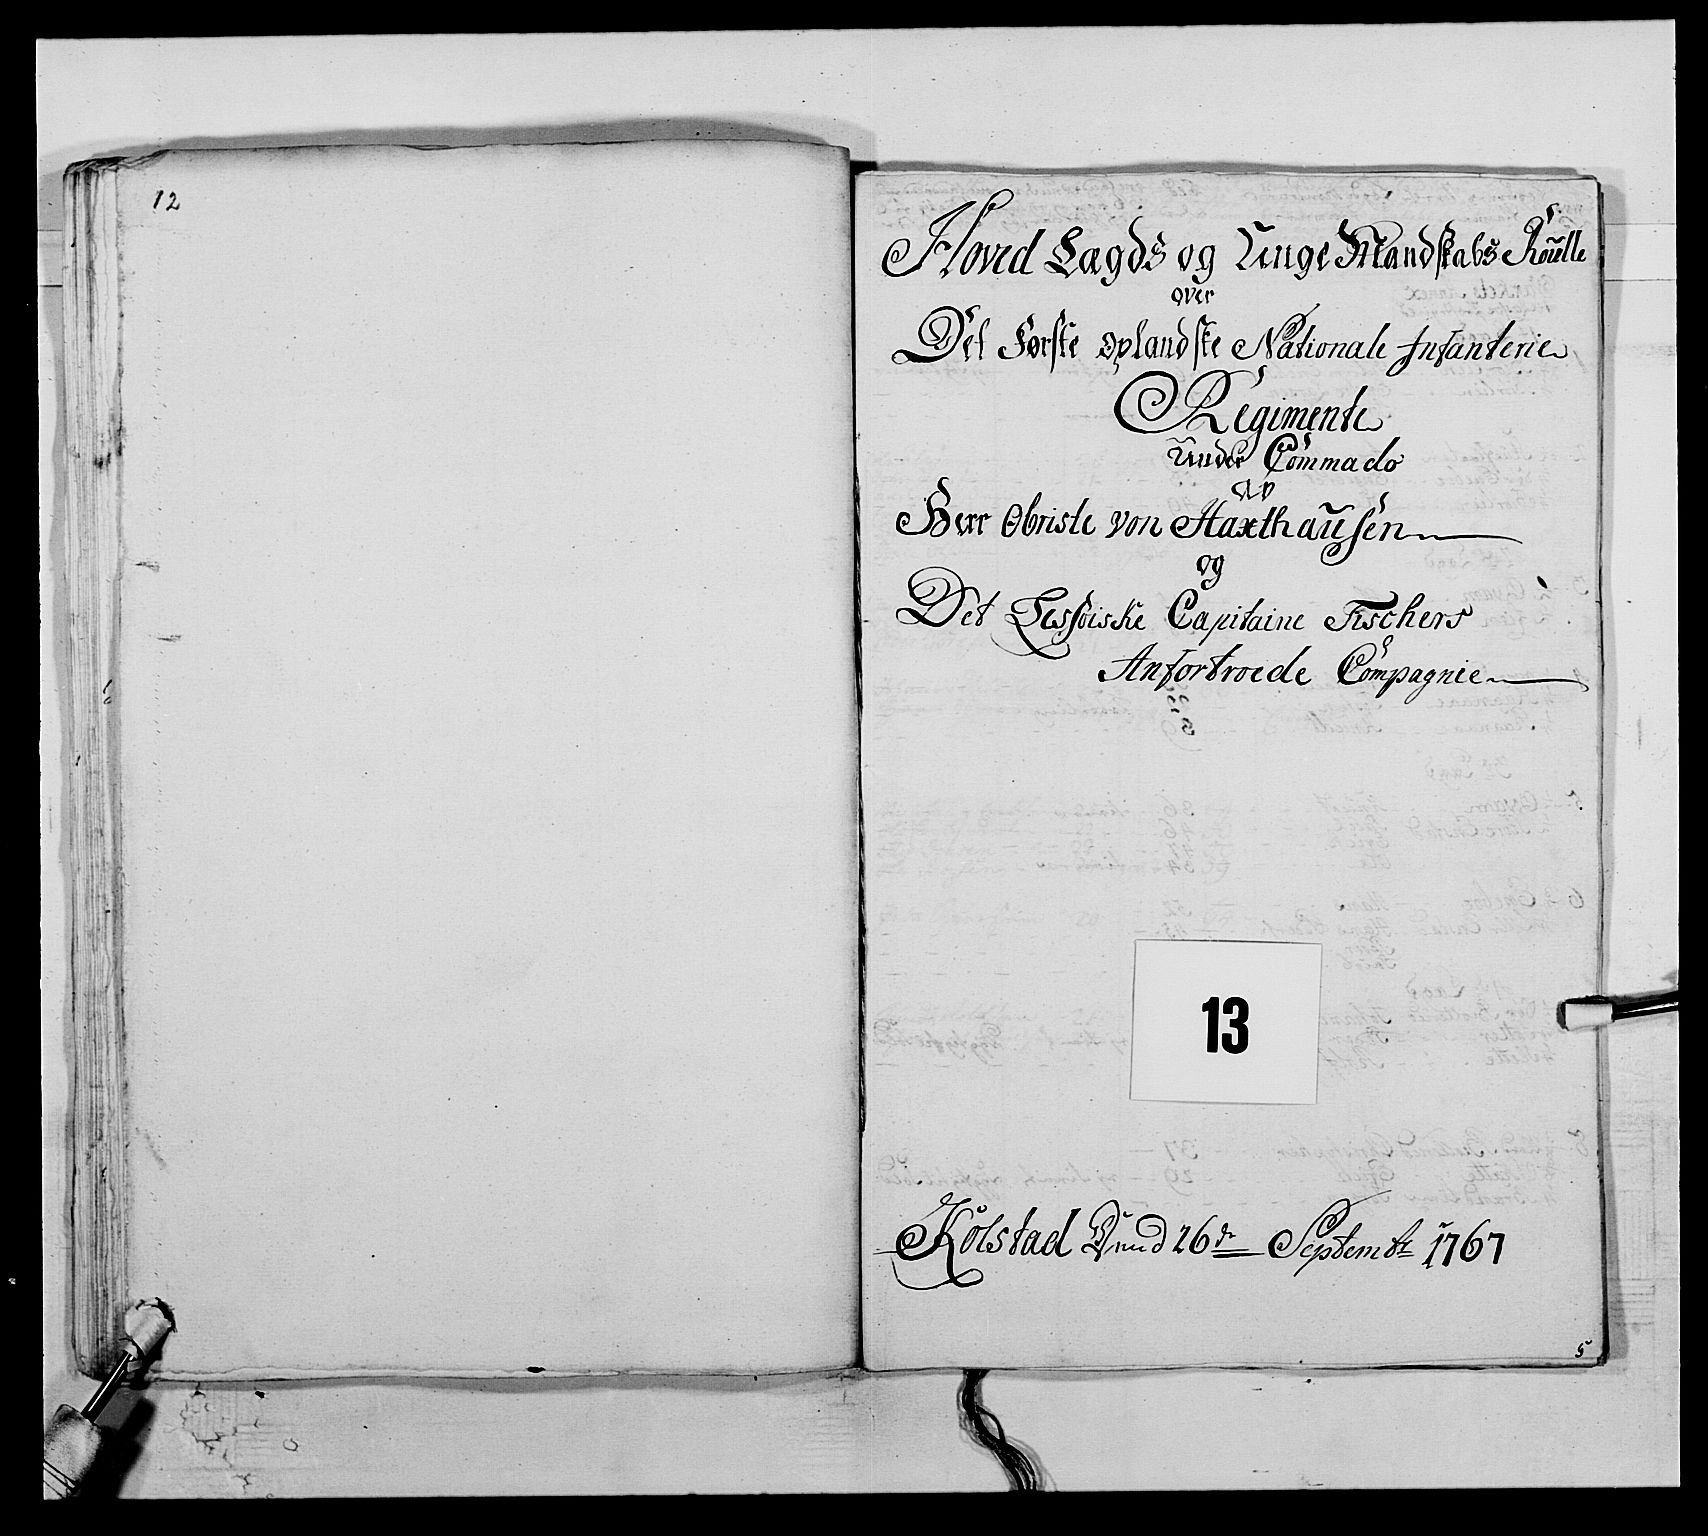 12
Hoved Lægds og Unge Mandskabs Roulle
over
Det Første oplandske Nationale Infanterie
Regimente
Under Commado
av
Herr Obriste von Haxthausen
og
Det Lessøiske Capitaine Fischers
Anfortroede Compagnie
13
Kolstad Dend 26de Septembr 1767
5